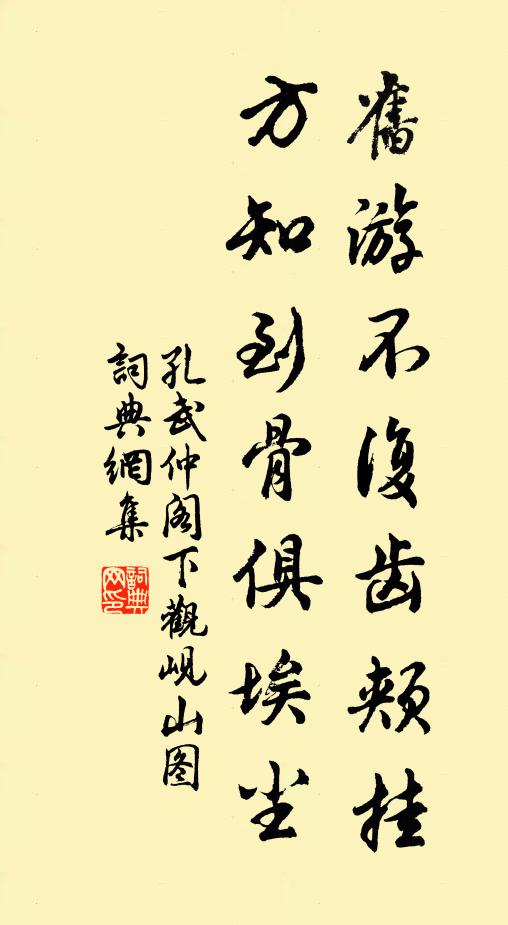 舊游不復齿頰挂
方知到骨俱埃尘
孔武仲阁下觀岘山图
詞典網集
詞典网印